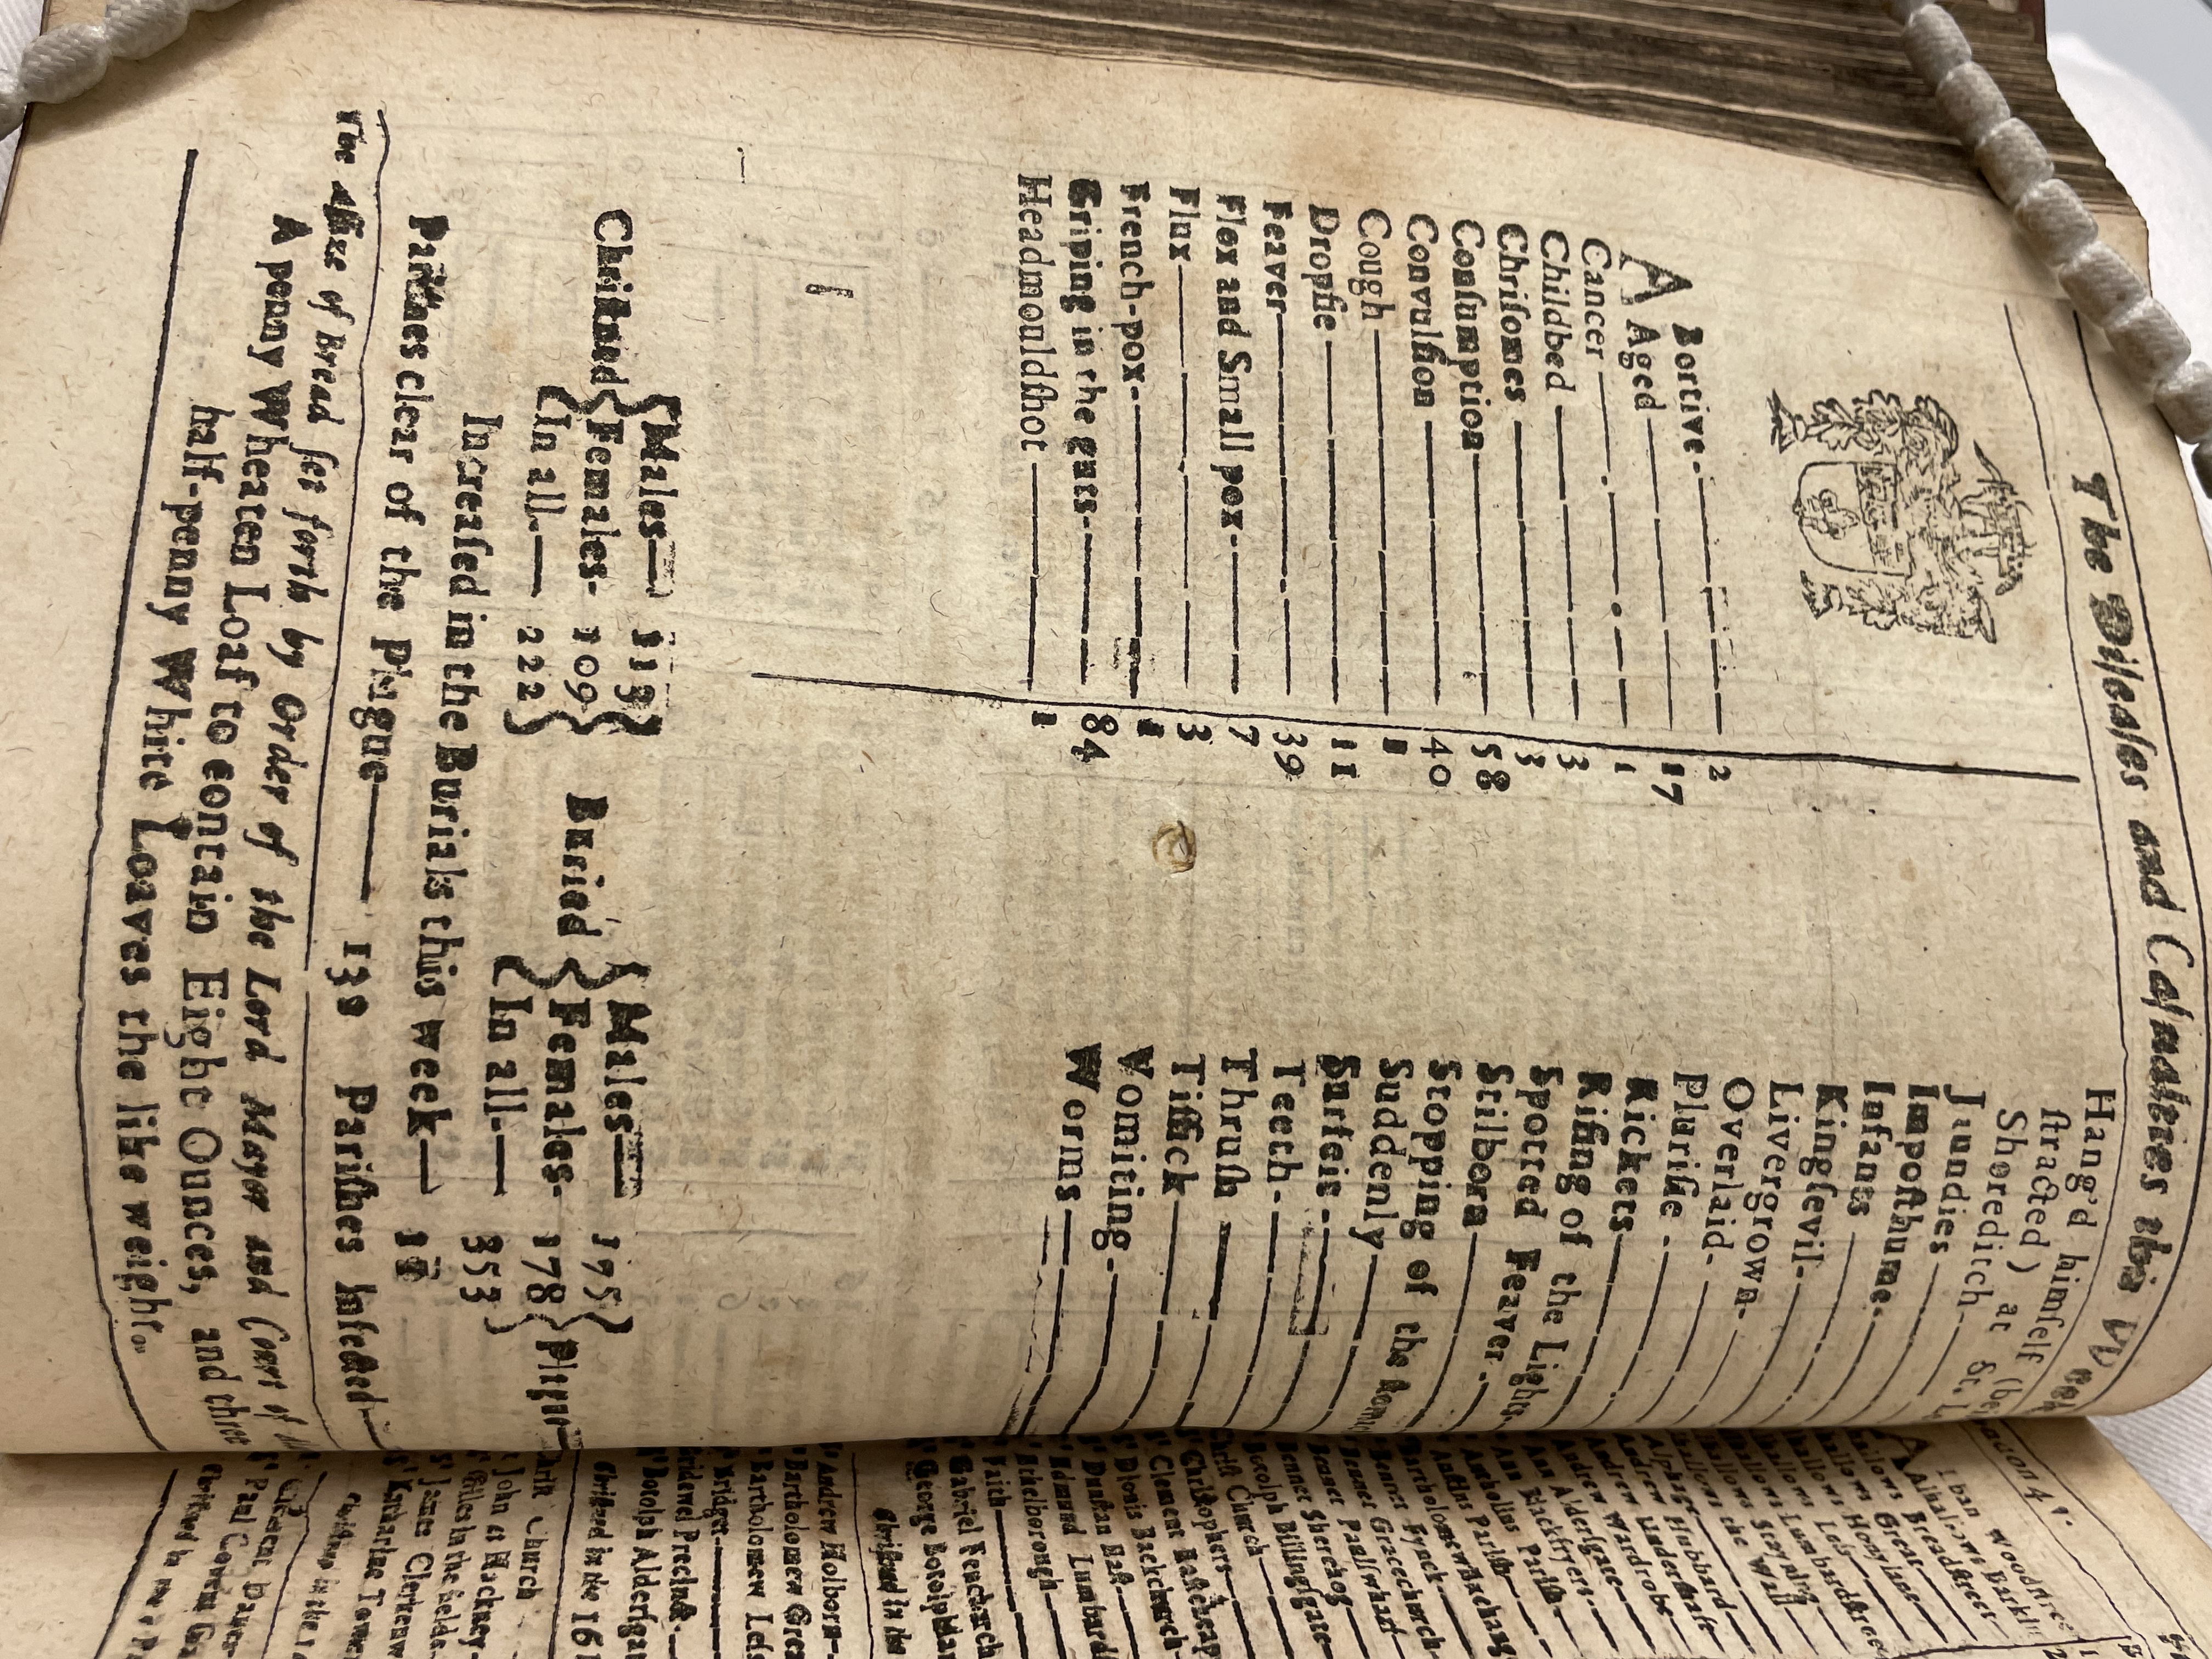 The Diseases and Casualties this Week
A Bortive 2
Aged 17
Cancer 1
Childbed 3
Chrisomes 3
Consumption 58
Convulsion 40
Cough 1
Dropsie 11
Feaver 39
Flox and Small pox 7
Flux 3
French-pox 1
Griping in the guts 84
Headmouldshot 1
Hang'd himself
stracted) at St.
Shoreditch
Jaundies
Imposthume
Infants
Kingsevil
Livergrown
Overlaid
Plurisie
Rickets
Rising of the Lights
Spotted Feaver
Stilborn
Stopping of the
Suddenly
Surfeit
Teeth
Thrush
Tissick
Vomiting
Worms
Christned { Males 113 Females 109 In all 222 }
Buried { Males 175 Females 178 In all 353 }
Increased in the Burials this week
Parishes clear of the Plague 130 Parishes Infected
The Assize of Bread set forth by Order of the Lord Mayor and Court of
A penny Wheaten Loaf to contain Eight Ounces, and three
half-penny White Loaves the like weight.
Alban Woodstreet
Alhallows Barking
Alhallows Breadstreet
Alhallows Great
Alhallows Honylane
Alhallows Less
Alhallows Lumbardstreet
Alhallows Stayning
Alhallows the Wall
Alphage
Andrew Hubbard
Andrew Undershaft
Andrew Wardrobe
Ann Aldersgate
Ann Blackfryers
Antholins Parish
Austins Parish
Bartholomew Exchang
Bennet Fynck
Bennet Gracechurch
Bennet Paulswharf
Bennet Sherehog
Botolph Billingsgate
Christ Church
Christophers
Clement Eastcheap
Dionis Backchurch
Dunstan East
Edmund Lumbard
Ethelborough
Faith
Gabriel Fenchurch
George Botolphlan
Christned in the
Andrew Holborn
Bartholomew Grea
Bartholomew Less
Bridget
Bridewel Precinct
Botolph Aldersga
Christned in the 16
Christ Church
John at Hackney
Giles in the fields
James Clerkenw
Katharine Tower
Clement Danes
Paul Covent Ga